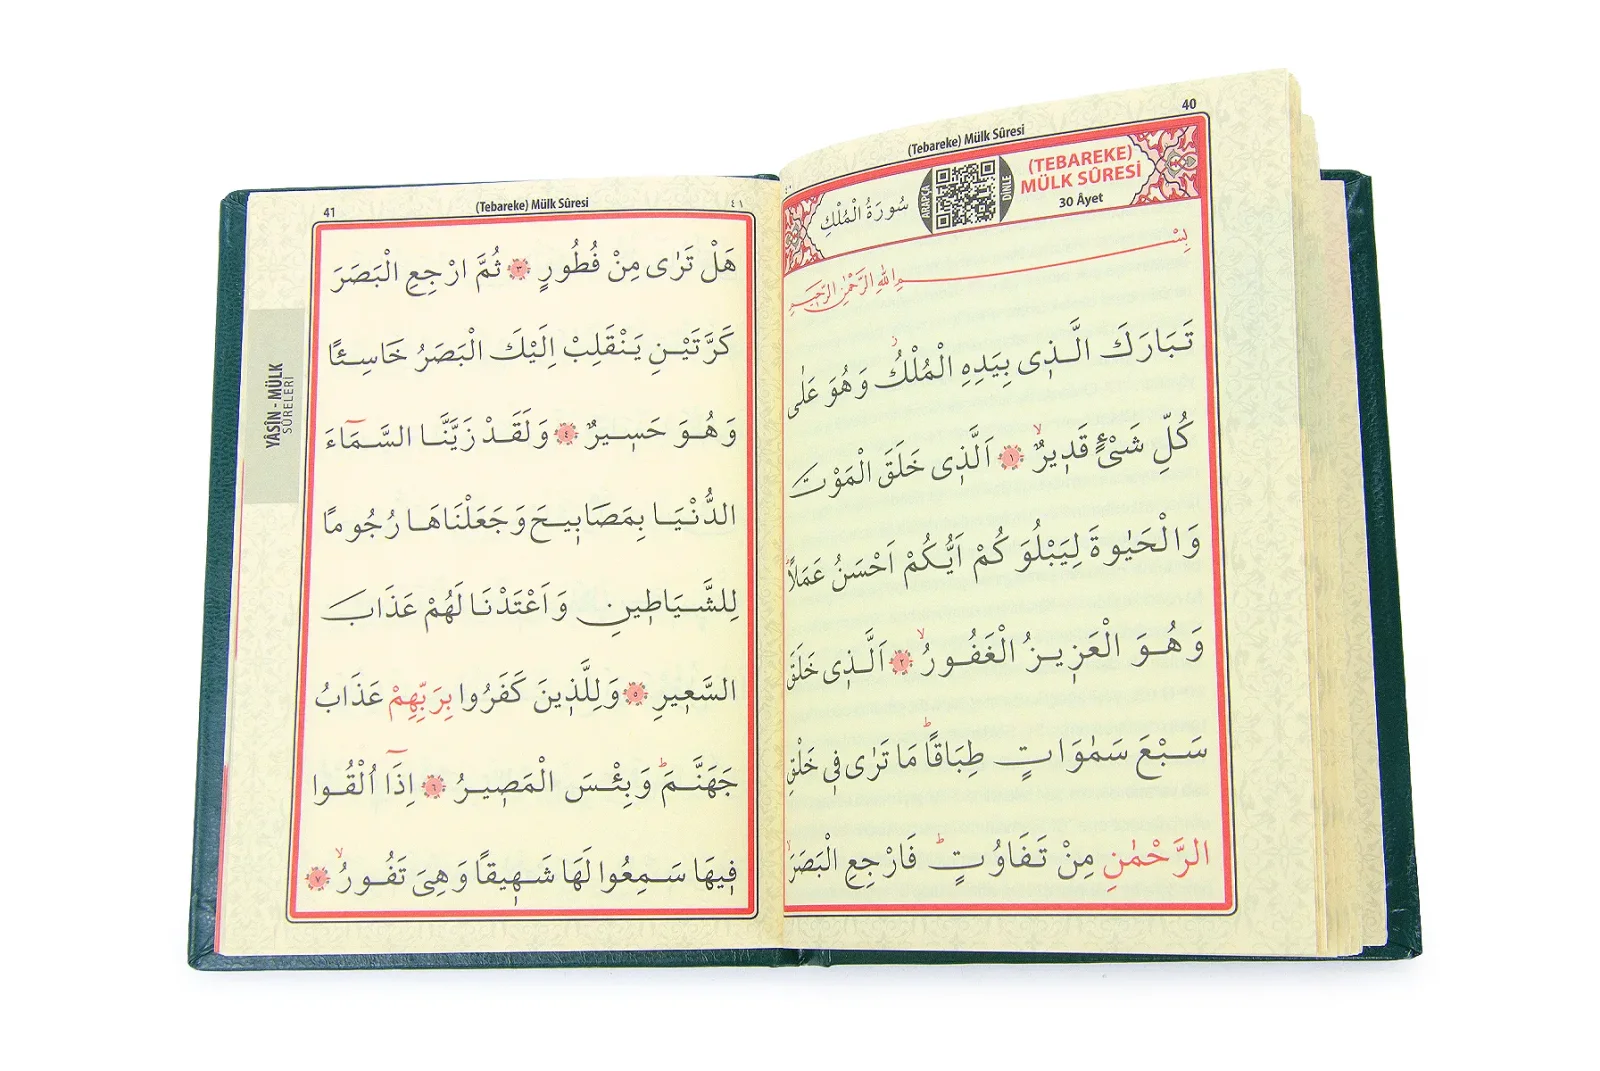 40
(Tebareke) Mülk Sûresi
(TEBAREKE)
MÜLK SÛRESİ
30 Âyet
DİNLE
ARAPÇA
سُورَةُ الْمُلْكِ
بِسْمِ اللّٰهِ الرَّحْمٰنِ الرَّحِيمِ
تَبَارَكَ الَّذ۪ى بِيَدِهِ الْمُلْكُۘ وَهُوَ عَلٰى
كُلِّ شَىْءٍ قَد۪يرٌۙ ﴿١﴾ اَلَّذ۪ى خَلَقَ الْمَوْتَ
وَالْحَيٰوةَ لِيَبْلُوَكُمْ اَيُّكُمْ اَحْسَنُ عَمَلاًۜ
وَهُوَ الْعَز۪يزُ الْغَفُورُۙ ﴿٢﴾ اَلَّذ۪ى خَلَقَ
سَبْعَ سَمٰوَاتٍ طِبَاقًاۜ مَا تَرٰى ف۪ى خَلْقِ
الرَّحْمٰنِ مِنْ تَفَاوُتٍۜ فَارْجِعِ الْبَصَرَۙ
41
(Tebareke) Mülk Sûresi
٤١
YÂSÎN - MÜLK
SÛRELERİ
هَلْ تَرٰى مِنْ فُطُورٍ ﴿٣﴾ ثُمَّ ارْجِعِ الْبَصَرَ
كَرَّتَيْنِ يَنْقَلِبْ اِلَيْكَ الْبَصَرُ خَاسِئًا
وَهُوَ حَس۪يرٌ ﴿٤﴾ وَلَقَدْ زَيَّنَّا السَّمَٓاءَ
الدُّنْيَا بِمَصَاب۪يحَ وَجَعَلْنَاهَا رُجُومًا
لِلشَّيَاط۪ينِ وَاَعْتَدْنَا لَهُمْ عَذَابَ
السَّع۪يرِ ﴿٥﴾ وَلِلَّذ۪ينَ كَفَرُوا بِرَبِّهِمْ عَذَابُ
جَهَنَّمَۜ وَبِئْسَ الْمَص۪يرُ ﴿٦﴾ اِذَٓا اُلْقُوا
ف۪يهَا سَمِعُوا لَهَا شَه۪يقًا وَهِىَ تَفُورُۙ ﴿٧﴾